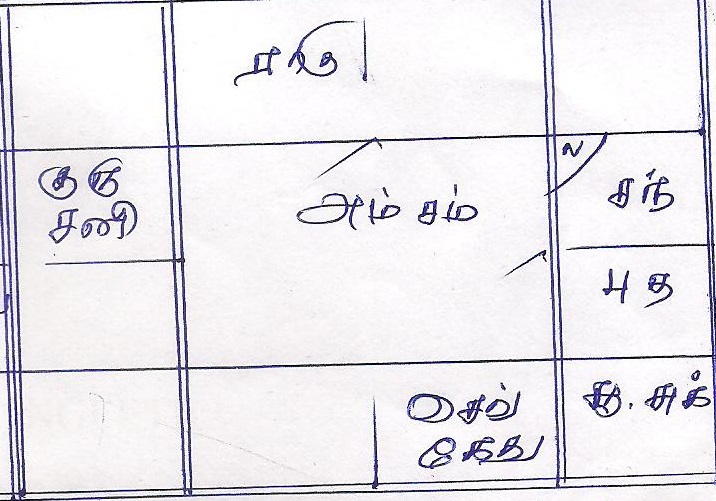 ராகு
ல
குரு
சனி
அம்சம்
சந்
புத
செவ்
கேது
சுக்